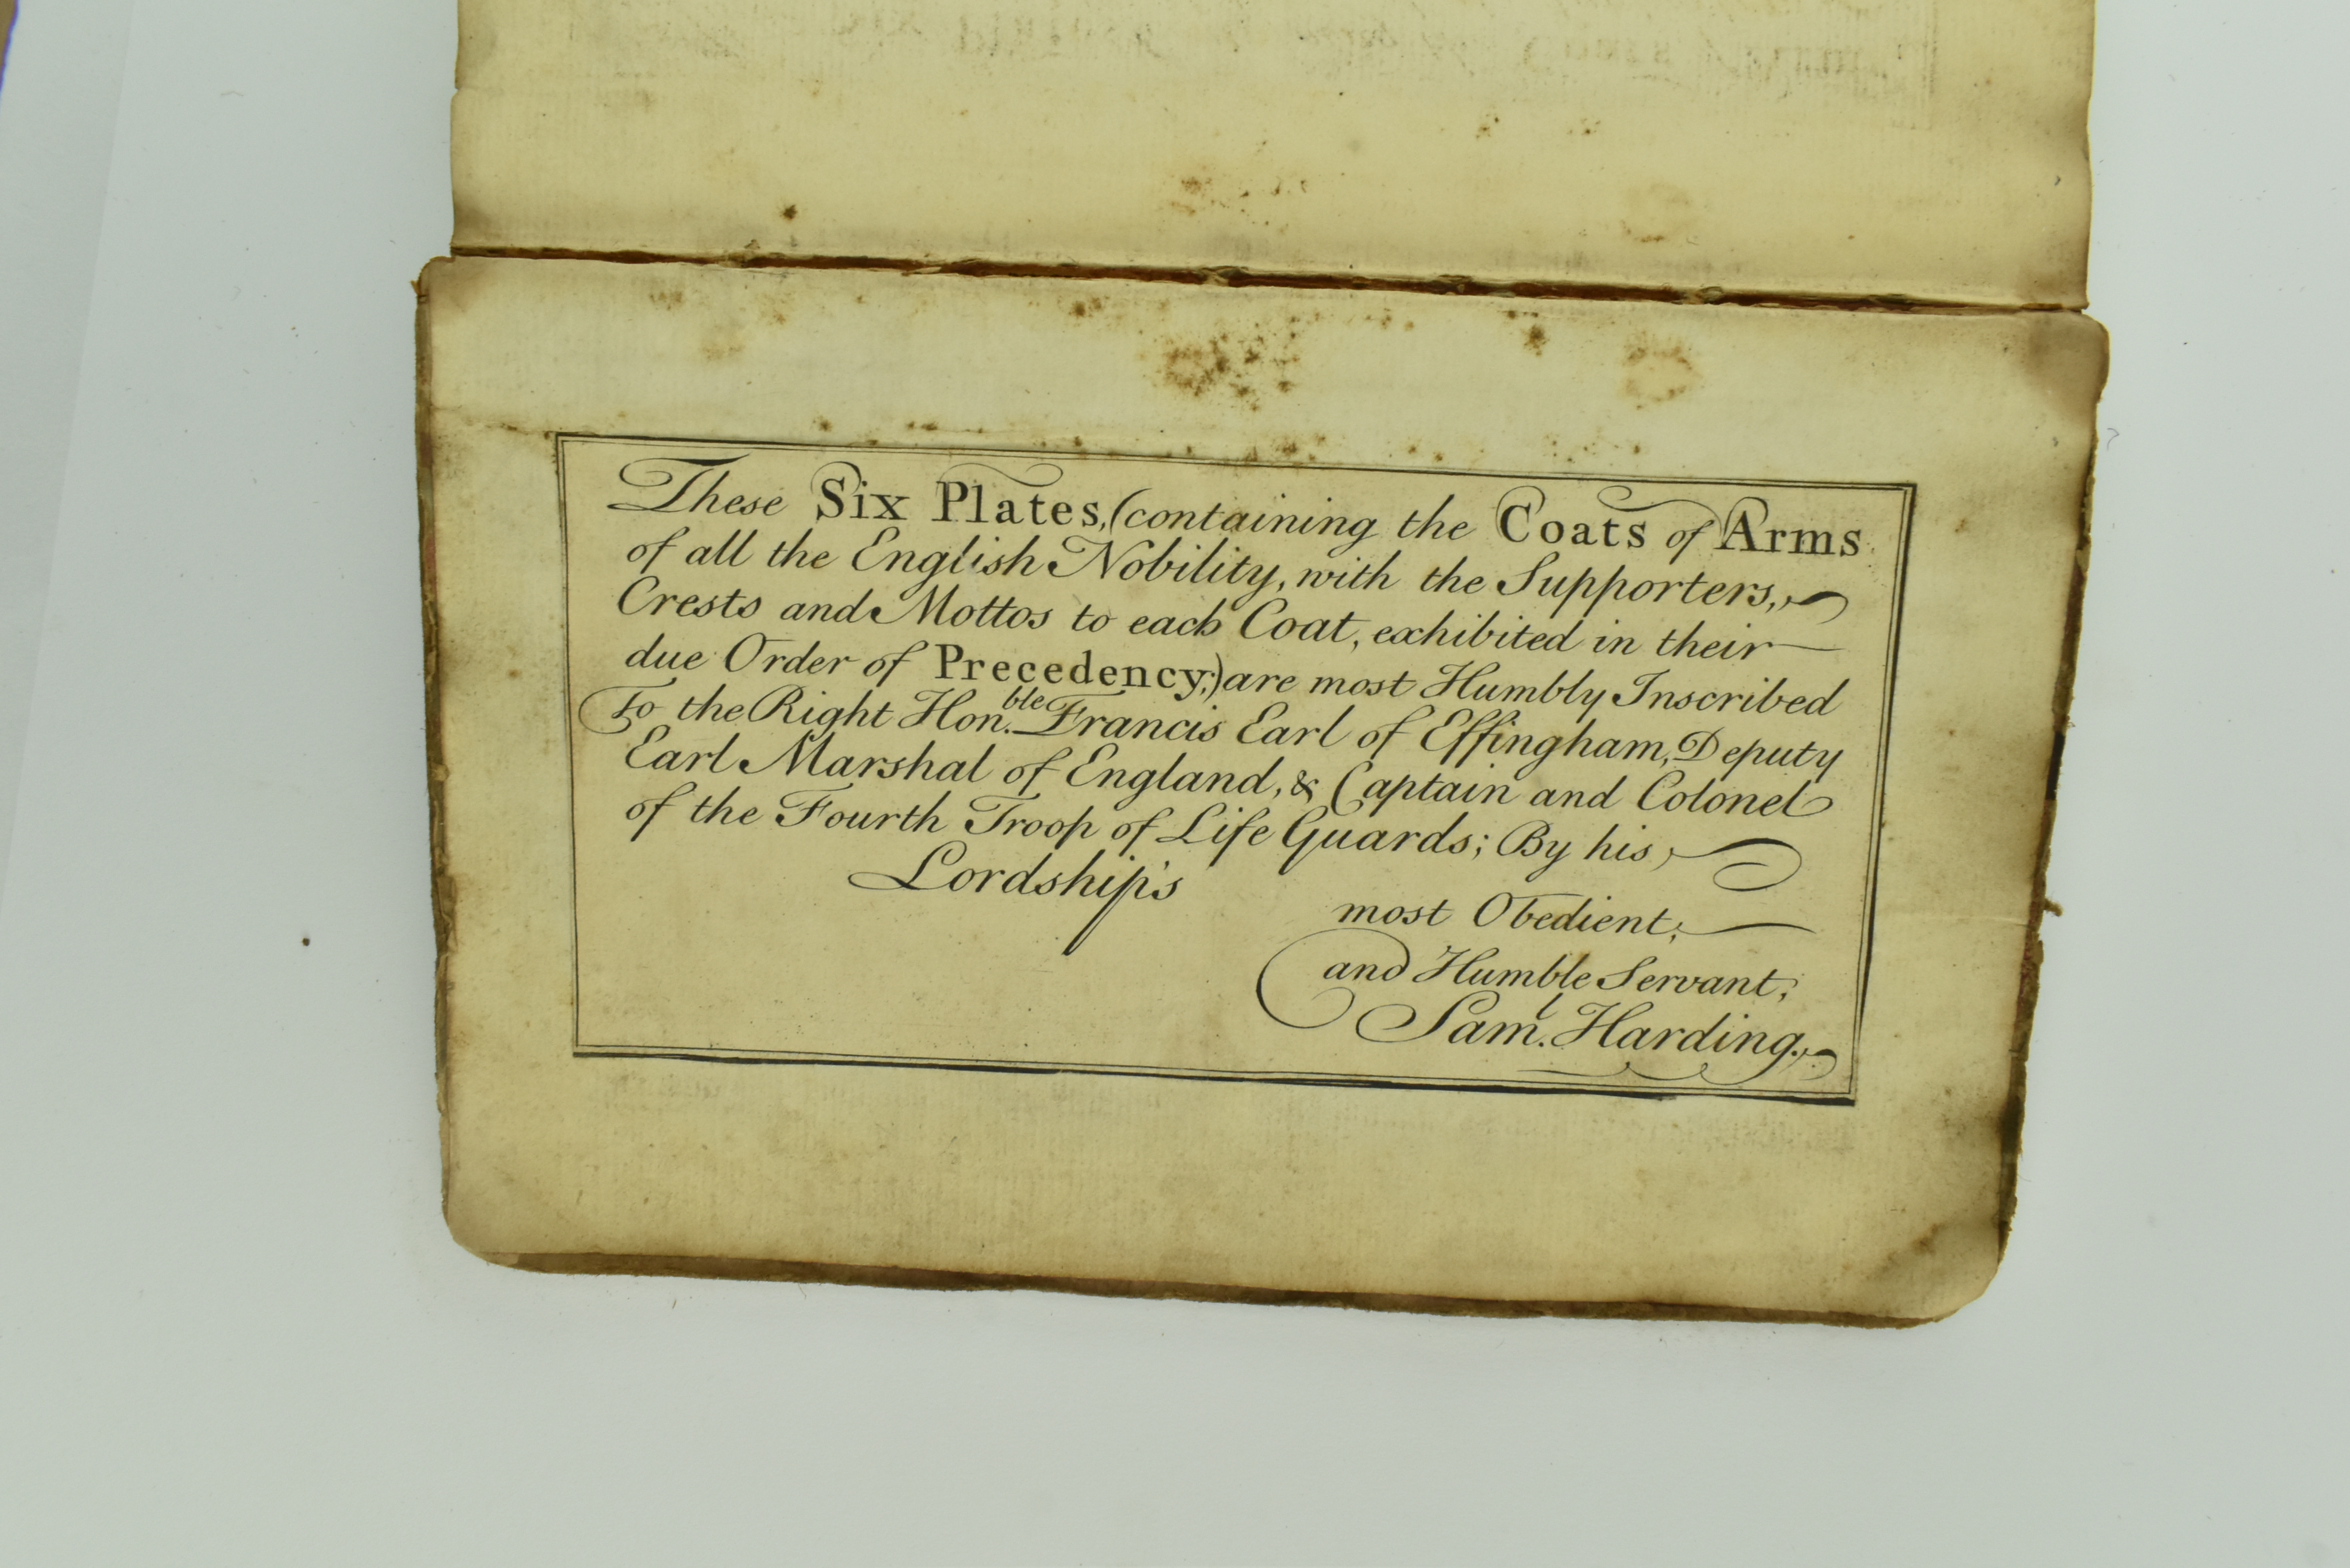 These Six Plates, (containing the Coats of Arms
of all the English Nobility, with the Supporters,
Crests and Mottos to each Coat, exhibited in their
due Order of Precedency;) are most Humbly Inscribed
To the Right Hon.ble Francis Earl of Effingham, Deputy
Earl Marshal of England, & Captain and Colonel
of the Fourth Troop of Life Guards; By his
Lordship's
most Obedient,
and Humble Servant,
Sam.l Harding.